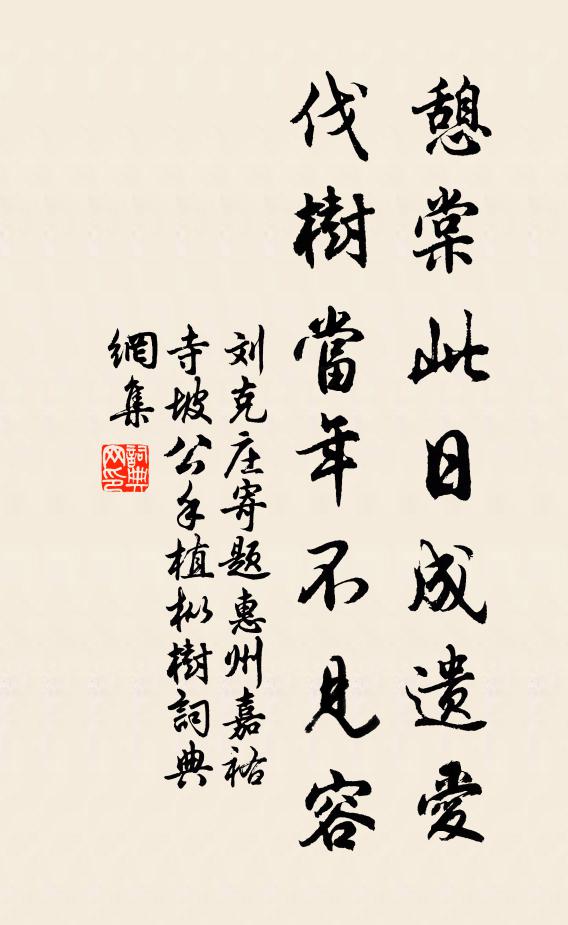 憩棠此日成遺愛
伐樹當年不見容
刘克庄寄题惠州嘉祐
寺坡公手植枞樹詞典
網集
詞典
网印